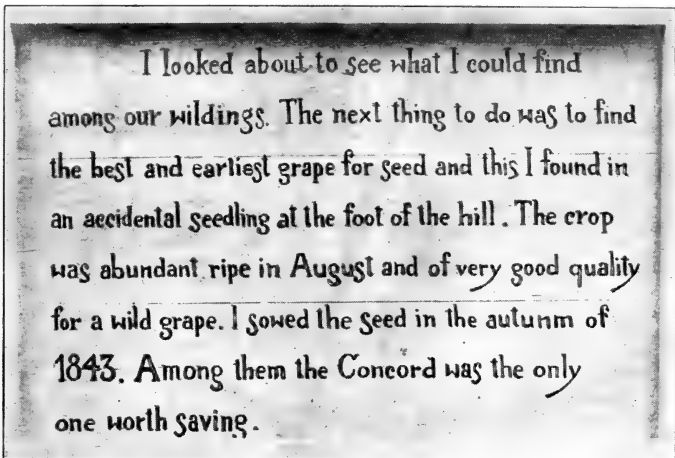 I looked about to see what I could find
among our wildings. The next thing to do was to find
the best and earliest grape for seed and this I found in
an accidental seedling at the foot of the hill. The crop
was abundant ripe in August and of very good quality
for a wild grape. I sowed the seed in the autunm of
1843. Among them the Concord was the only
one worth saving.